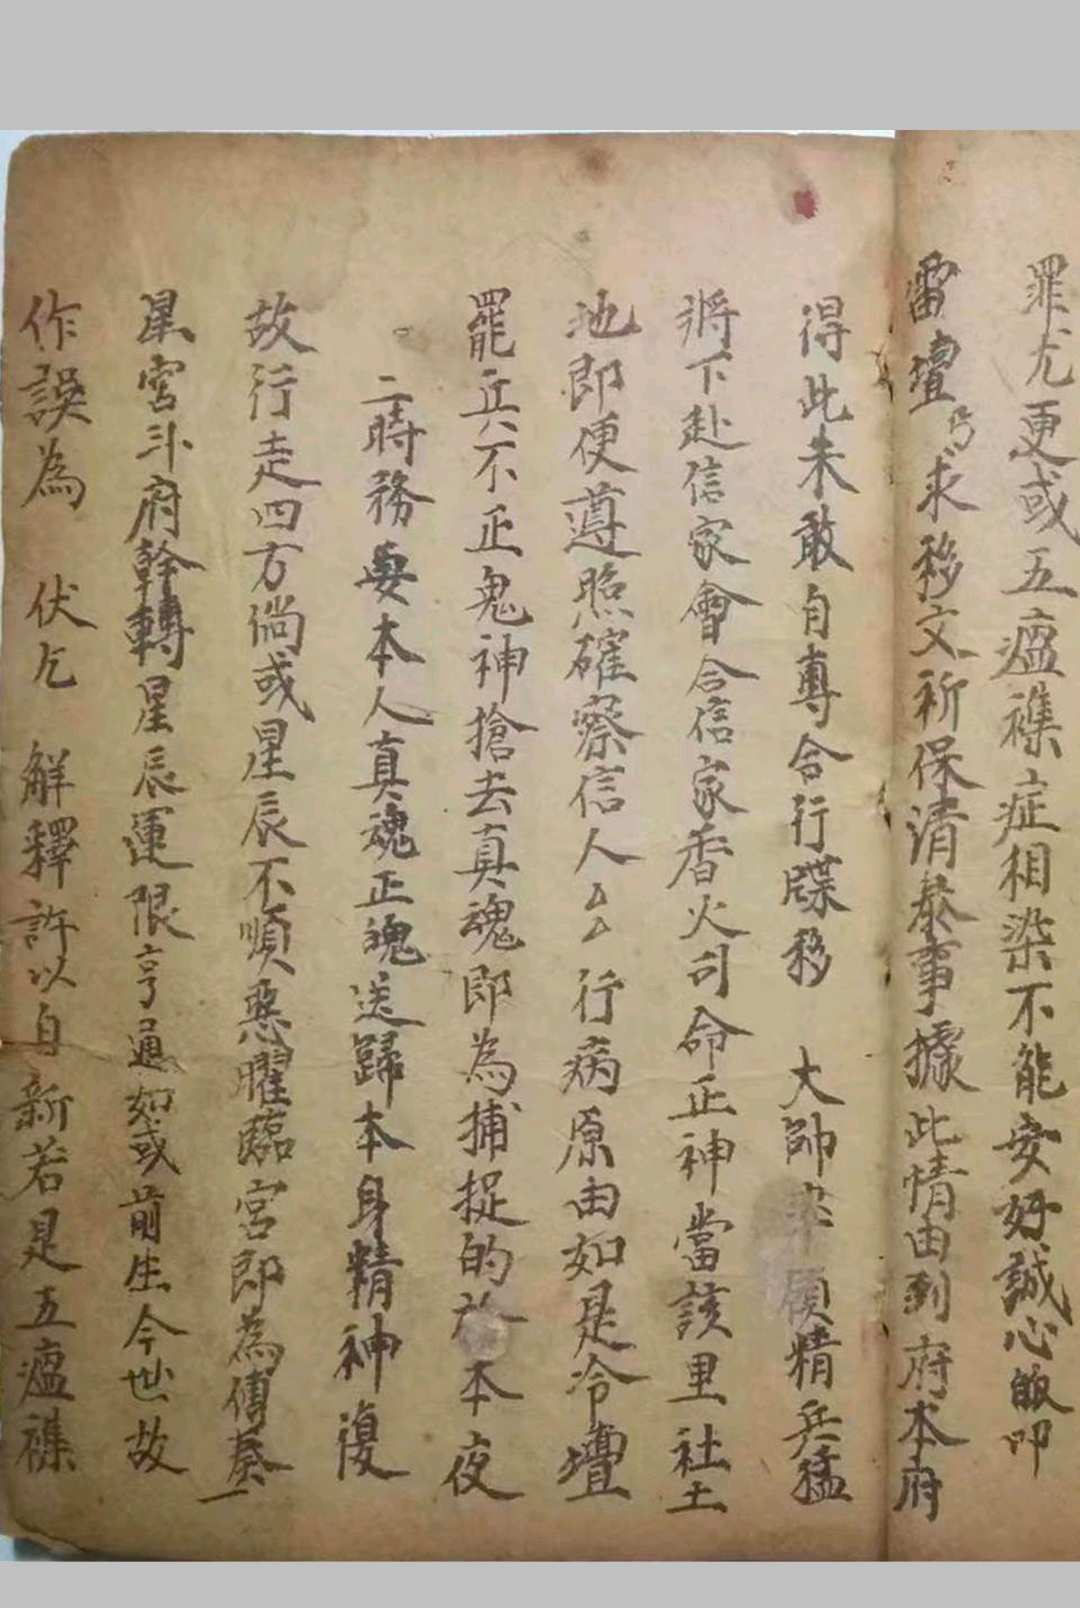 罪尤更或五瘟襍症相染不能安好誠心皈叩
雷壇乃求移文祈保清泰事據此情由到府本府
得此未敢自專合行牒移 大帥 頋精兵猛
將下赴信家會合信家香火司命正神當該里社土
地即便遵照確察信人厶厶行病原由如是冷壇
罷兵不正鬼神搶去真魂即為捕捉的於本夜
二時務要本人真魂正魄送歸本身精神復
故行走四方倘或星辰不順惡曜臨宮即為傳奏一
星宮斗府幹轉星辰運限亨通如或前生今世故
作誤為 伏乞 解釋許以自新若是五瘟襍